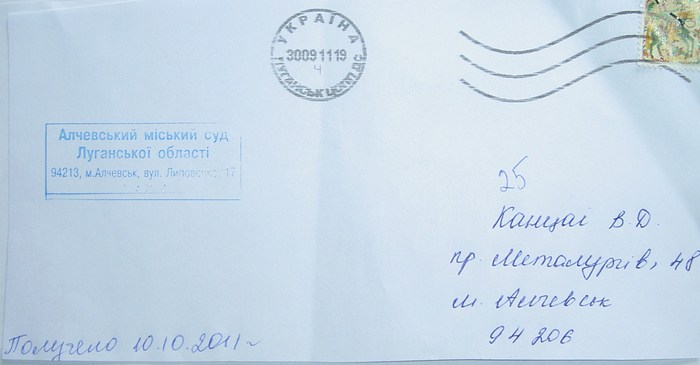 УКРАЇНА
30091119
Ч
ЛУГАНСЬК
Алчевський міський суд
Луганської області
94213, м.Алчевськ, вул. Липовенка, 17
25
В.Д.
пр. Металургів, 48
м. Алчевськ
94206
Получено 10.10.2011г